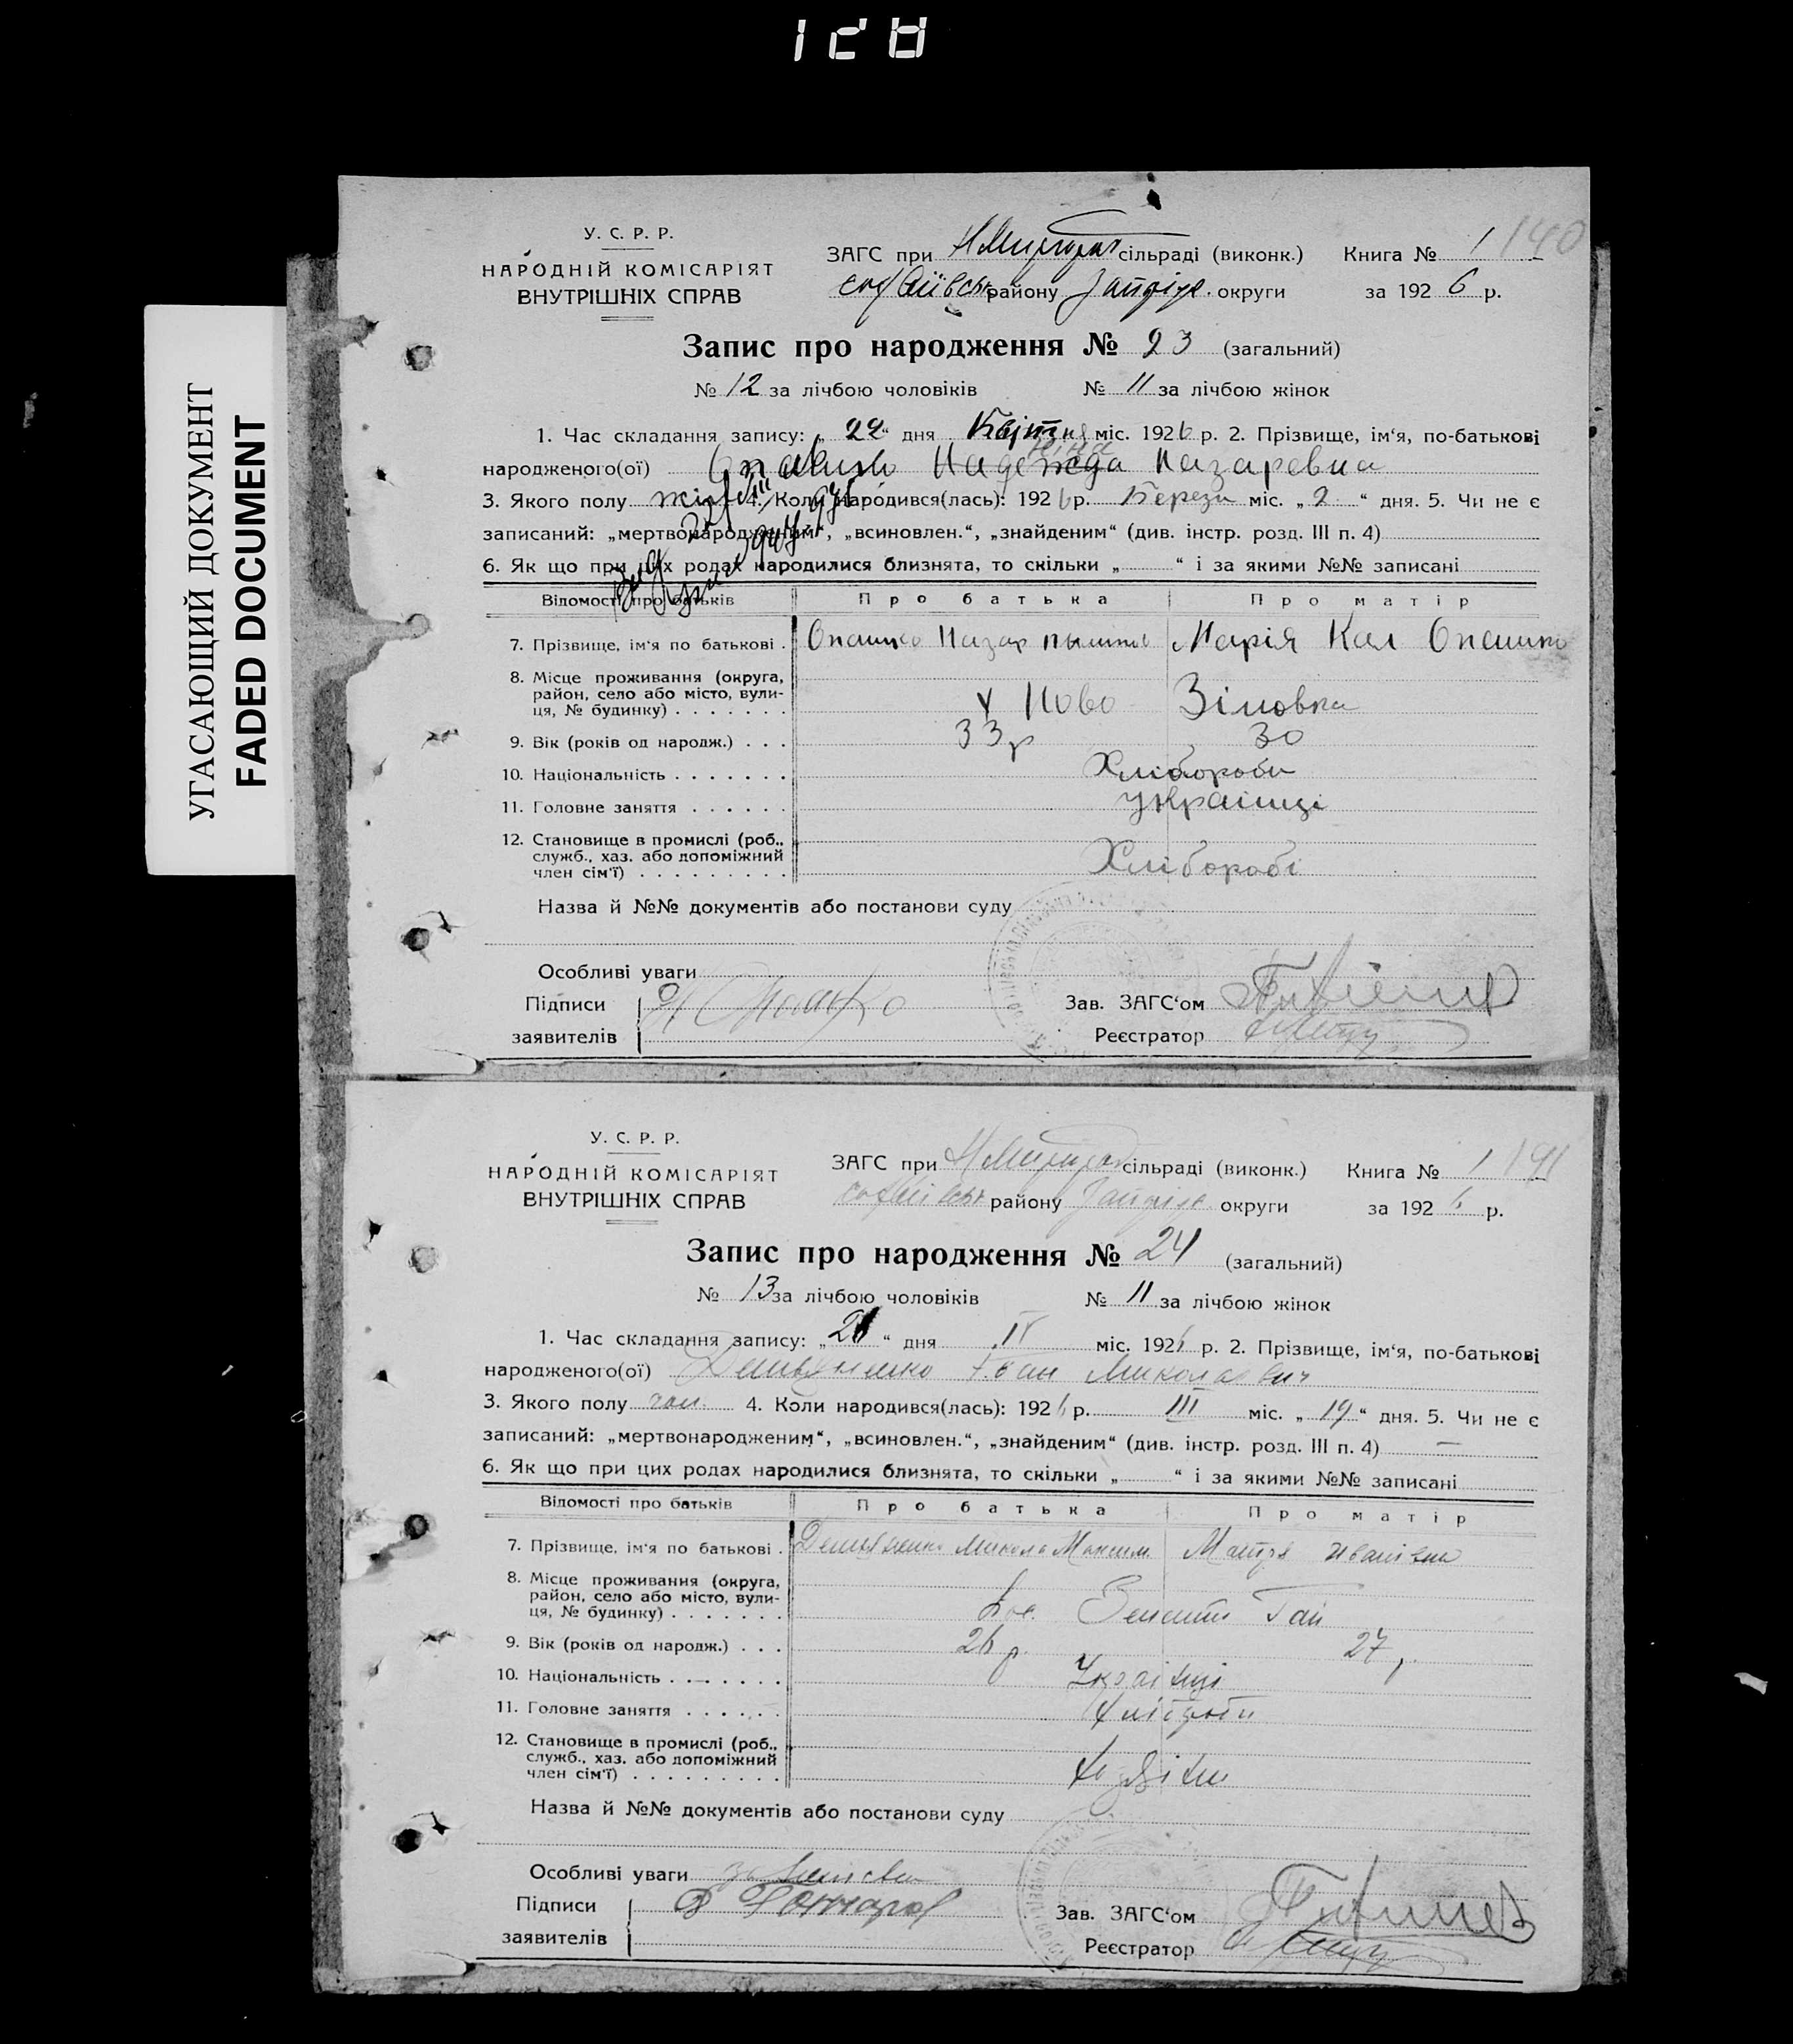 128
УГАСАЮЩИЙ ДОКУМЕНТ
FADED DOCUMENT
У. С. Р. Р.
НАРОДНІЙ КОМІСАРІЯТ
ВНУТРІШНІХ СПРАВ
ЗАГС при сільраді (виконк.) Книга № 1 140
району округи за 1926 р.
Запис про народження № 23 (загальний)
№ 12 за лічбою чоловіків № 11 за лічбою жінок
1. Час складання запису: „22“ дня Квітня міс. 1926 р. 2. Прізвище, ім‘я, по-батькові
народженого(ої) Надежда Назаревна
3. Якого полу 4. Коли народився(лась): 1926 р. Березн міс. „2“ дня. 5. Чи не є
записаний: „мертвонародженим“, „всиновлен.“, „знайденим“ (див. інстр. розд. III п. 4)
6. Як що при цих родах народилися близнята, то скільки „ “ і за якими №№ записані
Відомості про батьків Про батька Про матір
7. Прізвище, ім‘я по батькові . Опашко Назар Марія Кал Опашко
8. Місце проживання (округа,
район, село або місто, вули-
ця, № будинку) . . . . . . . Ново Зіновка
9. Вік (років од народж.) . . . 33 р 30
10. Національність . . . . . . . Хлібороби
11. Головне заняття . . . . . . українці
12. Становище в промислі (роб.,
служб., хаз. або допоміжний
член сім‘ї) . . . . . . . . . Хлібороби
Назва й №№ документів або постанови суду
Особливі уваги
Підписи
заявителів
Зав. ЗАГС‘ом
Реєстратор
У. С. Р. Р.
НАРОДНІЙ КОМІСАРІЯТ
ВНУТРІШНІХ СПРАВ
ЗАГС при сільраді (виконк.) Книга № 1 141
району округи за 1926 р.
Запис про народження № 24 (загальний)
№ 13 за лічбою чоловіків № 11 за лічбою жінок
1. Час складання запису: „ “ дня IV міс. 1926 р. 2. Прізвище, ім‘я, по-батькові
народженого(ої) Іван Миколаевич
3. Якого полу чол. 4. Коли народився(лась): 1926 р. III міс. „19“ дня. 5. Чи не є
записаний: „мертвонародженим“, „всиновлен.“, „знайденим“ (див. інстр. розд. III п. 4) —
6. Як що при цих родах народилися близнята, то скільки „ “ і за якими №№ записані
Відомості про батьків Про батька Про матір
7. Прізвище, ім‘я по батькові . Микола Максим Мотря Иванівна
8. Місце проживання (округа,
район, село або місто, вули-
ця, № будинку) . . . . . . . Гай
9. Вік (років од народж.) . . . 26 р. 27 р.
10. Національність . . . . . . . Українці
11. Головне заняття . . . . . . Хлібороби
12. Становище в промислі (роб.,
служб., хаз. або допоміжний
член сім‘ї) . . . . . . . . .
Назва й №№ документів або постанови суду
Особливі уваги
Підписи
заявителів
Зав. ЗАГС‘ом
Реєстратор